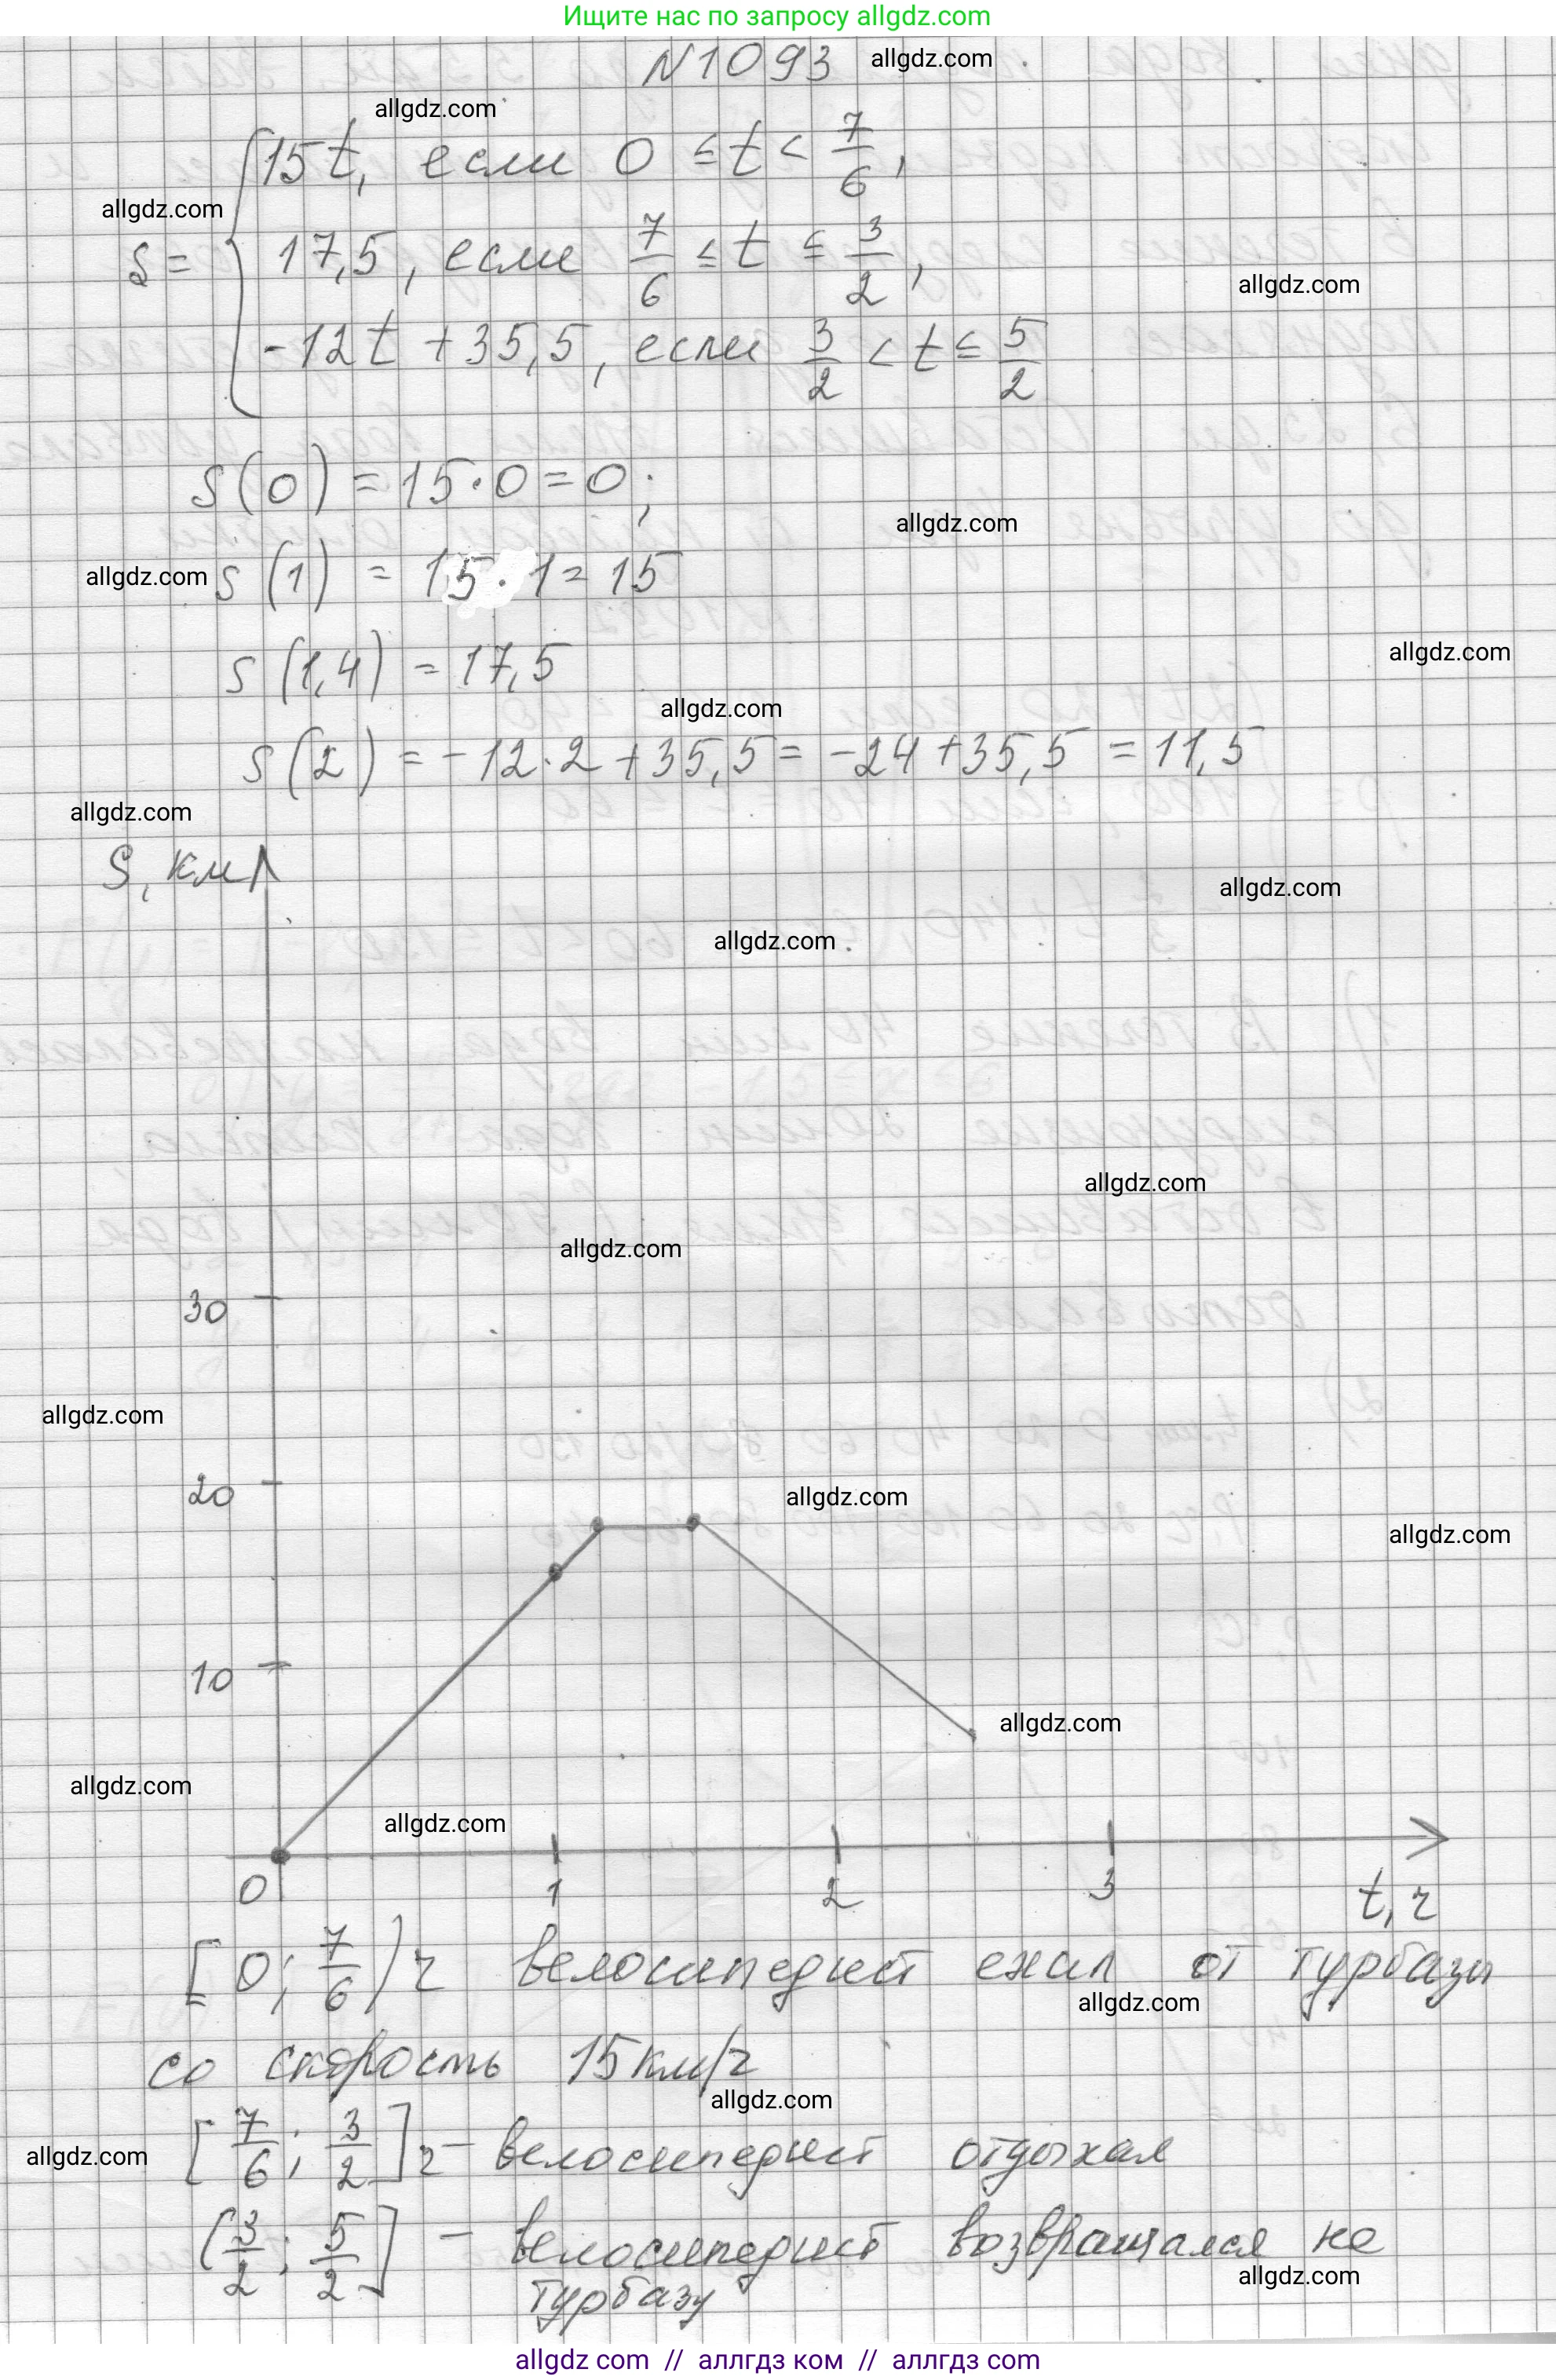 Ищите нас по запросу allgdz.com
N1093 allgdz.com
allgdz.com
15t, если 0 ≤ t < 7/6,
allgdz.com
s = { 17,5, если 7/6 ≤ t ≤ 3/2,
allgdz.com
-12t + 35,5, если 3/2 < t ≤ 5/2
s(0) = 15·0 = 0;
allgdz.com
allgdz.com s(1) = 15·1 = 15
allgdz.com
s(1,4) = 17,5
allgdz.com
s(2) = -12·2 + 35,5 = -24 + 35,5 = 11,5
allgdz.com
S, км
allgdz.com
allgdz.com
allgdz.com
allgdz.com
30
allgdz.com
20
allgdz.com
allgdz.com
10
allgdz.com
allgdz.com
allgdz.com
0 1 2 3 t, ч
[0; 7/6) ч велосипедист ехал от турбазы
allgdz.com
со скорость 15 км/ч
allgdz.com
allgdz.com [7/6; 3/2] ч - велосипедист отдыхал
(3/2; 5/2] - велосипедист возвращался на
allgdz.com
турбазу
allgdz com // аллгдз ком // аллгдз com